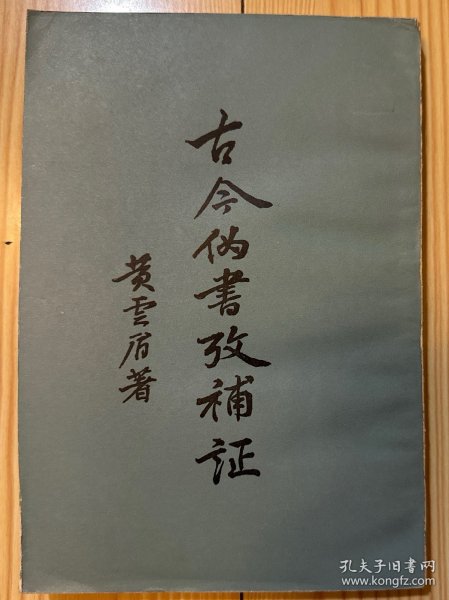 古今伪書攷補证
黄雲眉著
孔夫子旧书网
www.kongfz.com